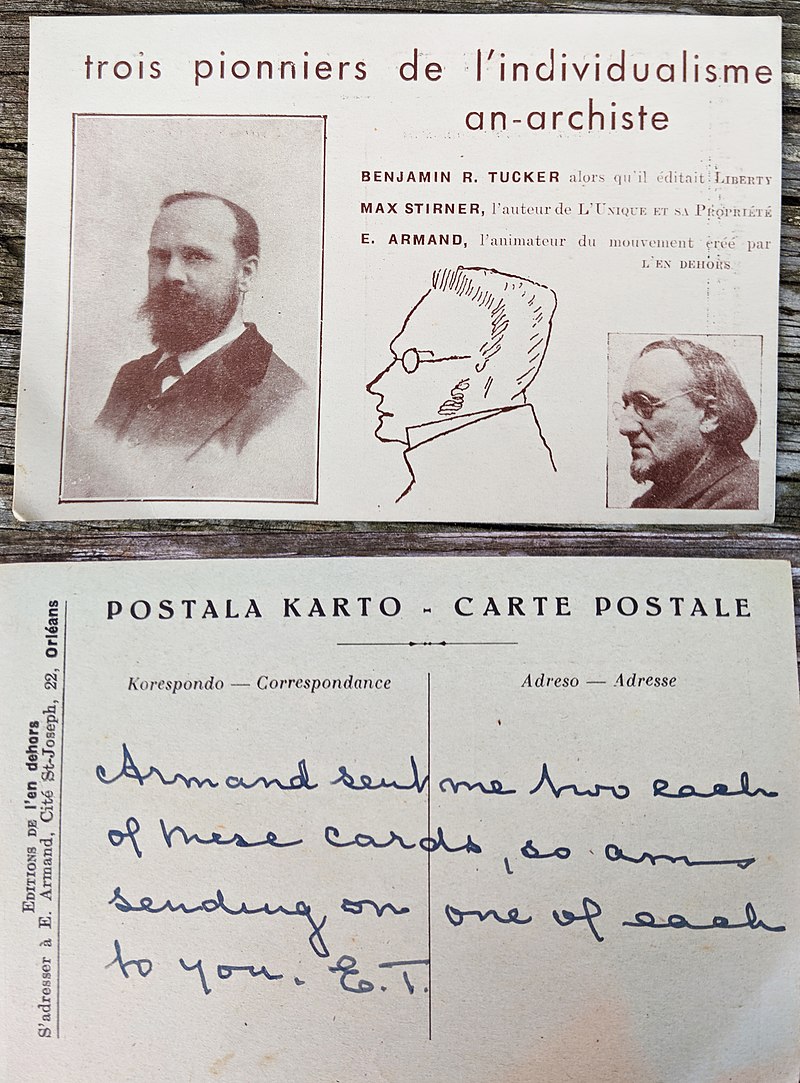 trois pionniers de l'individualisme
an-archiste
BENJAMIN R. TUCKER alors qu'il éditait LIBERTY
MAX STIRNER, l'auteur de L'UNIQUE ET SA PROPRIÉTÉ
E. ARMAND, l'animateur du mouvement créé par
L'EN DEHORS
POSTALA KARTO - CARTE POSTALE
Korespondo — Correspondance
Adreso — Adresse
EDITIONS DE l'en dehors
S'adresser à E. Armand, Cité St-Joseph, 22, Orléans
Armand sent me two each
of these cards, so am
sending on one of each
to you. E.T.